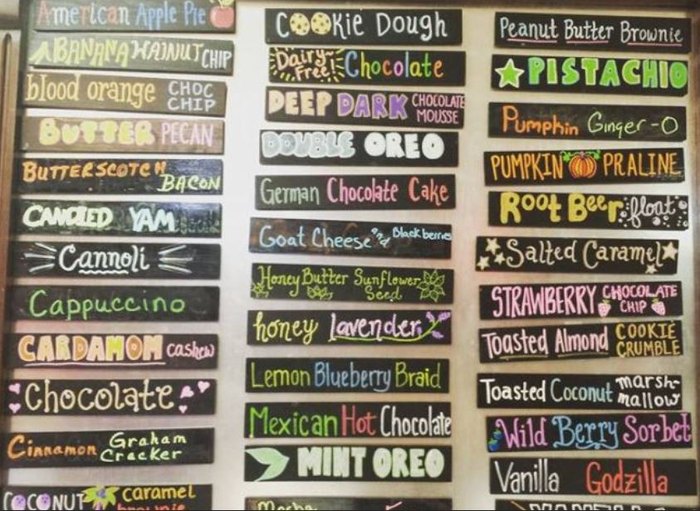 American Apple Pie
BANANA WALNUT CHIP
blood orange CHOC
CHIP
BUTTER PECAN
BUTTERSCOTCH
BACON
CANDIED YAM
Cannoli
Cappuccino
CARDAMOM cashew
Chocolate
Cinnamon Graham
Cracker
COCONUT caramel
brownie
COOKIE DOUGH
Dairy-
Free! Chocolate
DEEP DARK CHOCOLATE
MOUSSE
DOUBLE OREO
German Chocolate Cake
Goat Cheese and Blackberries
Honey Butter Sunflower
Seed
honey lavender
Lemon Blueberry Braid
Mexican Hot Chocolate
MINT OREO
Mocha
Peanut Butter Brownie
PISTACHIO
Pumpkin Ginger-O
PUMPKIN PRALINE
Root Beer float
Salted Caramel
STRAWBERRY CHOCOLATE
CHIP
Toasted Almond COOKIE
CRUMBLE
Toasted Coconut marsh-
mallow
Wild Berry Sorbet
Vanilla Godzilla